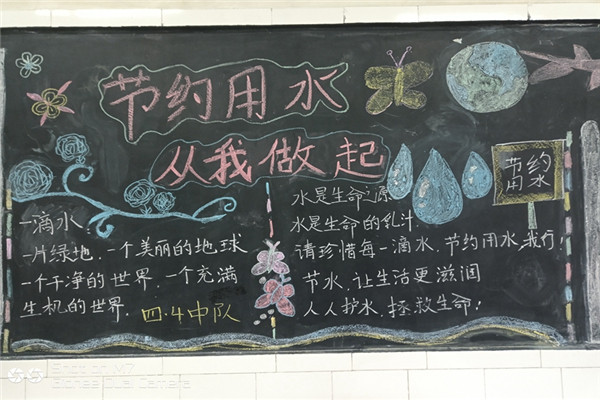 节约用水
从我做起
一滴水
一片绿地,一个美丽的地球
一个干净的世界,一个充满
生机的世界.
四·4中队
水是生命之源
水是生命的乳汁.
请珍惜每一滴水,节约用水,我行!
节水,让生活更滋润
人人护水,拯救生命!
节约
用水
Shot on M7
Score Dual Camera